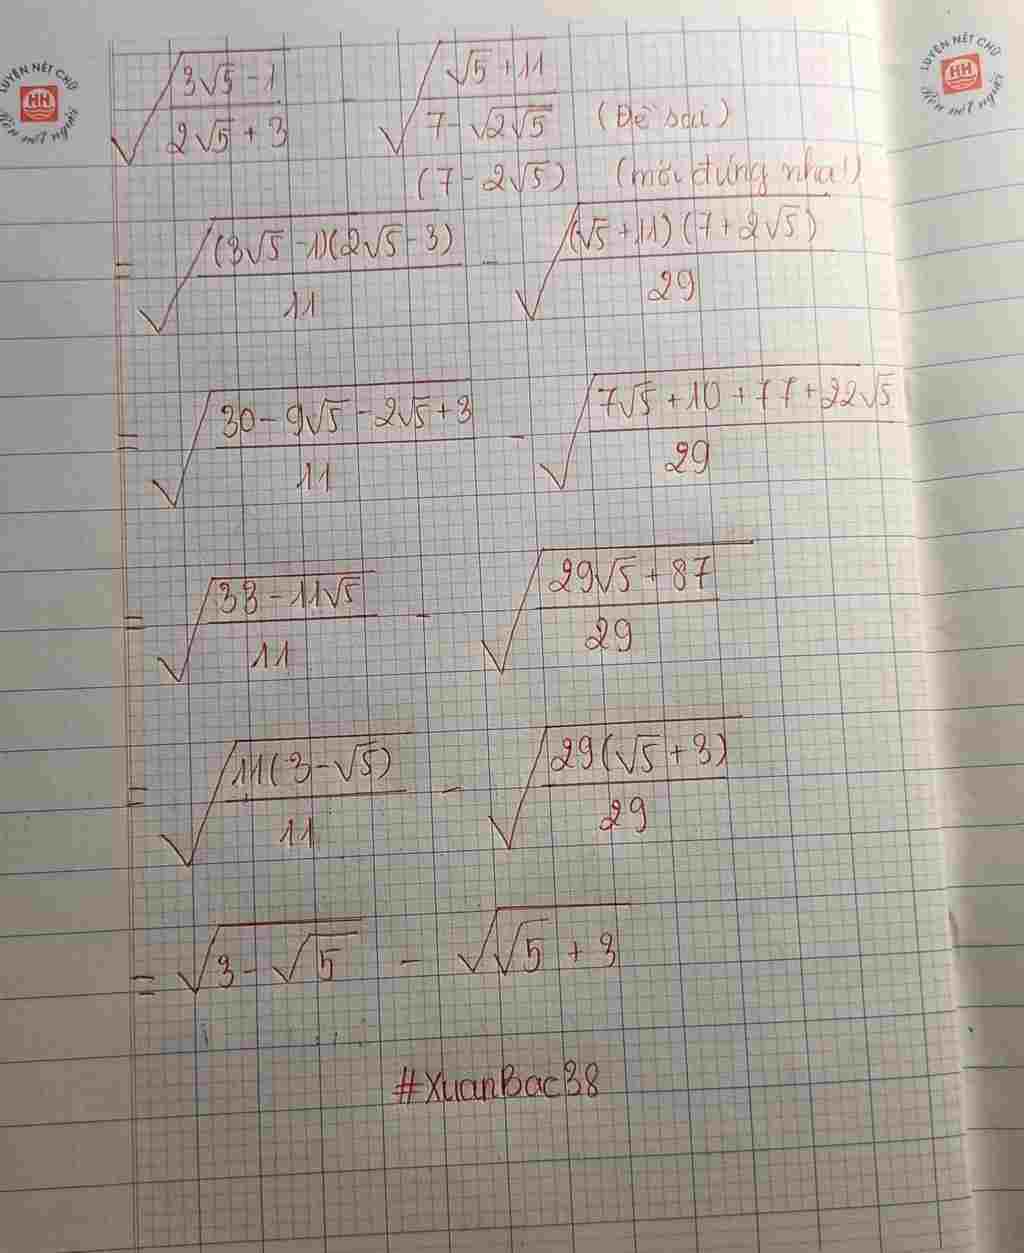 LUYỆN NÉT CHỮ
HH
Rèn nết người
LUYỆN NÉT CHỮ
HH
Rèn nết người
√((3√5 - 1)/(2√5 + 3)) - √((√5 + 11)/(7 - √2√5)) (Đề sai)
(7 - 2√5) (mới đúng nha!)
= √((3√5 - 1)(2√5 - 3)/11) - √((√5 + 11)(7 + 2√5)/29)
= √((30 - 9√5 - 2√5 + 3)/11) - √((7√5 + 10 + 77 + 22√5)/29)
= √((33 - 11√5)/11) - √((29√5 + 87)/29)
= √(11(3 - √5)/11) - √(29(√5 + 3)/29)
= √(3 - √5) - √(√5 + 3)
#XuanBac38